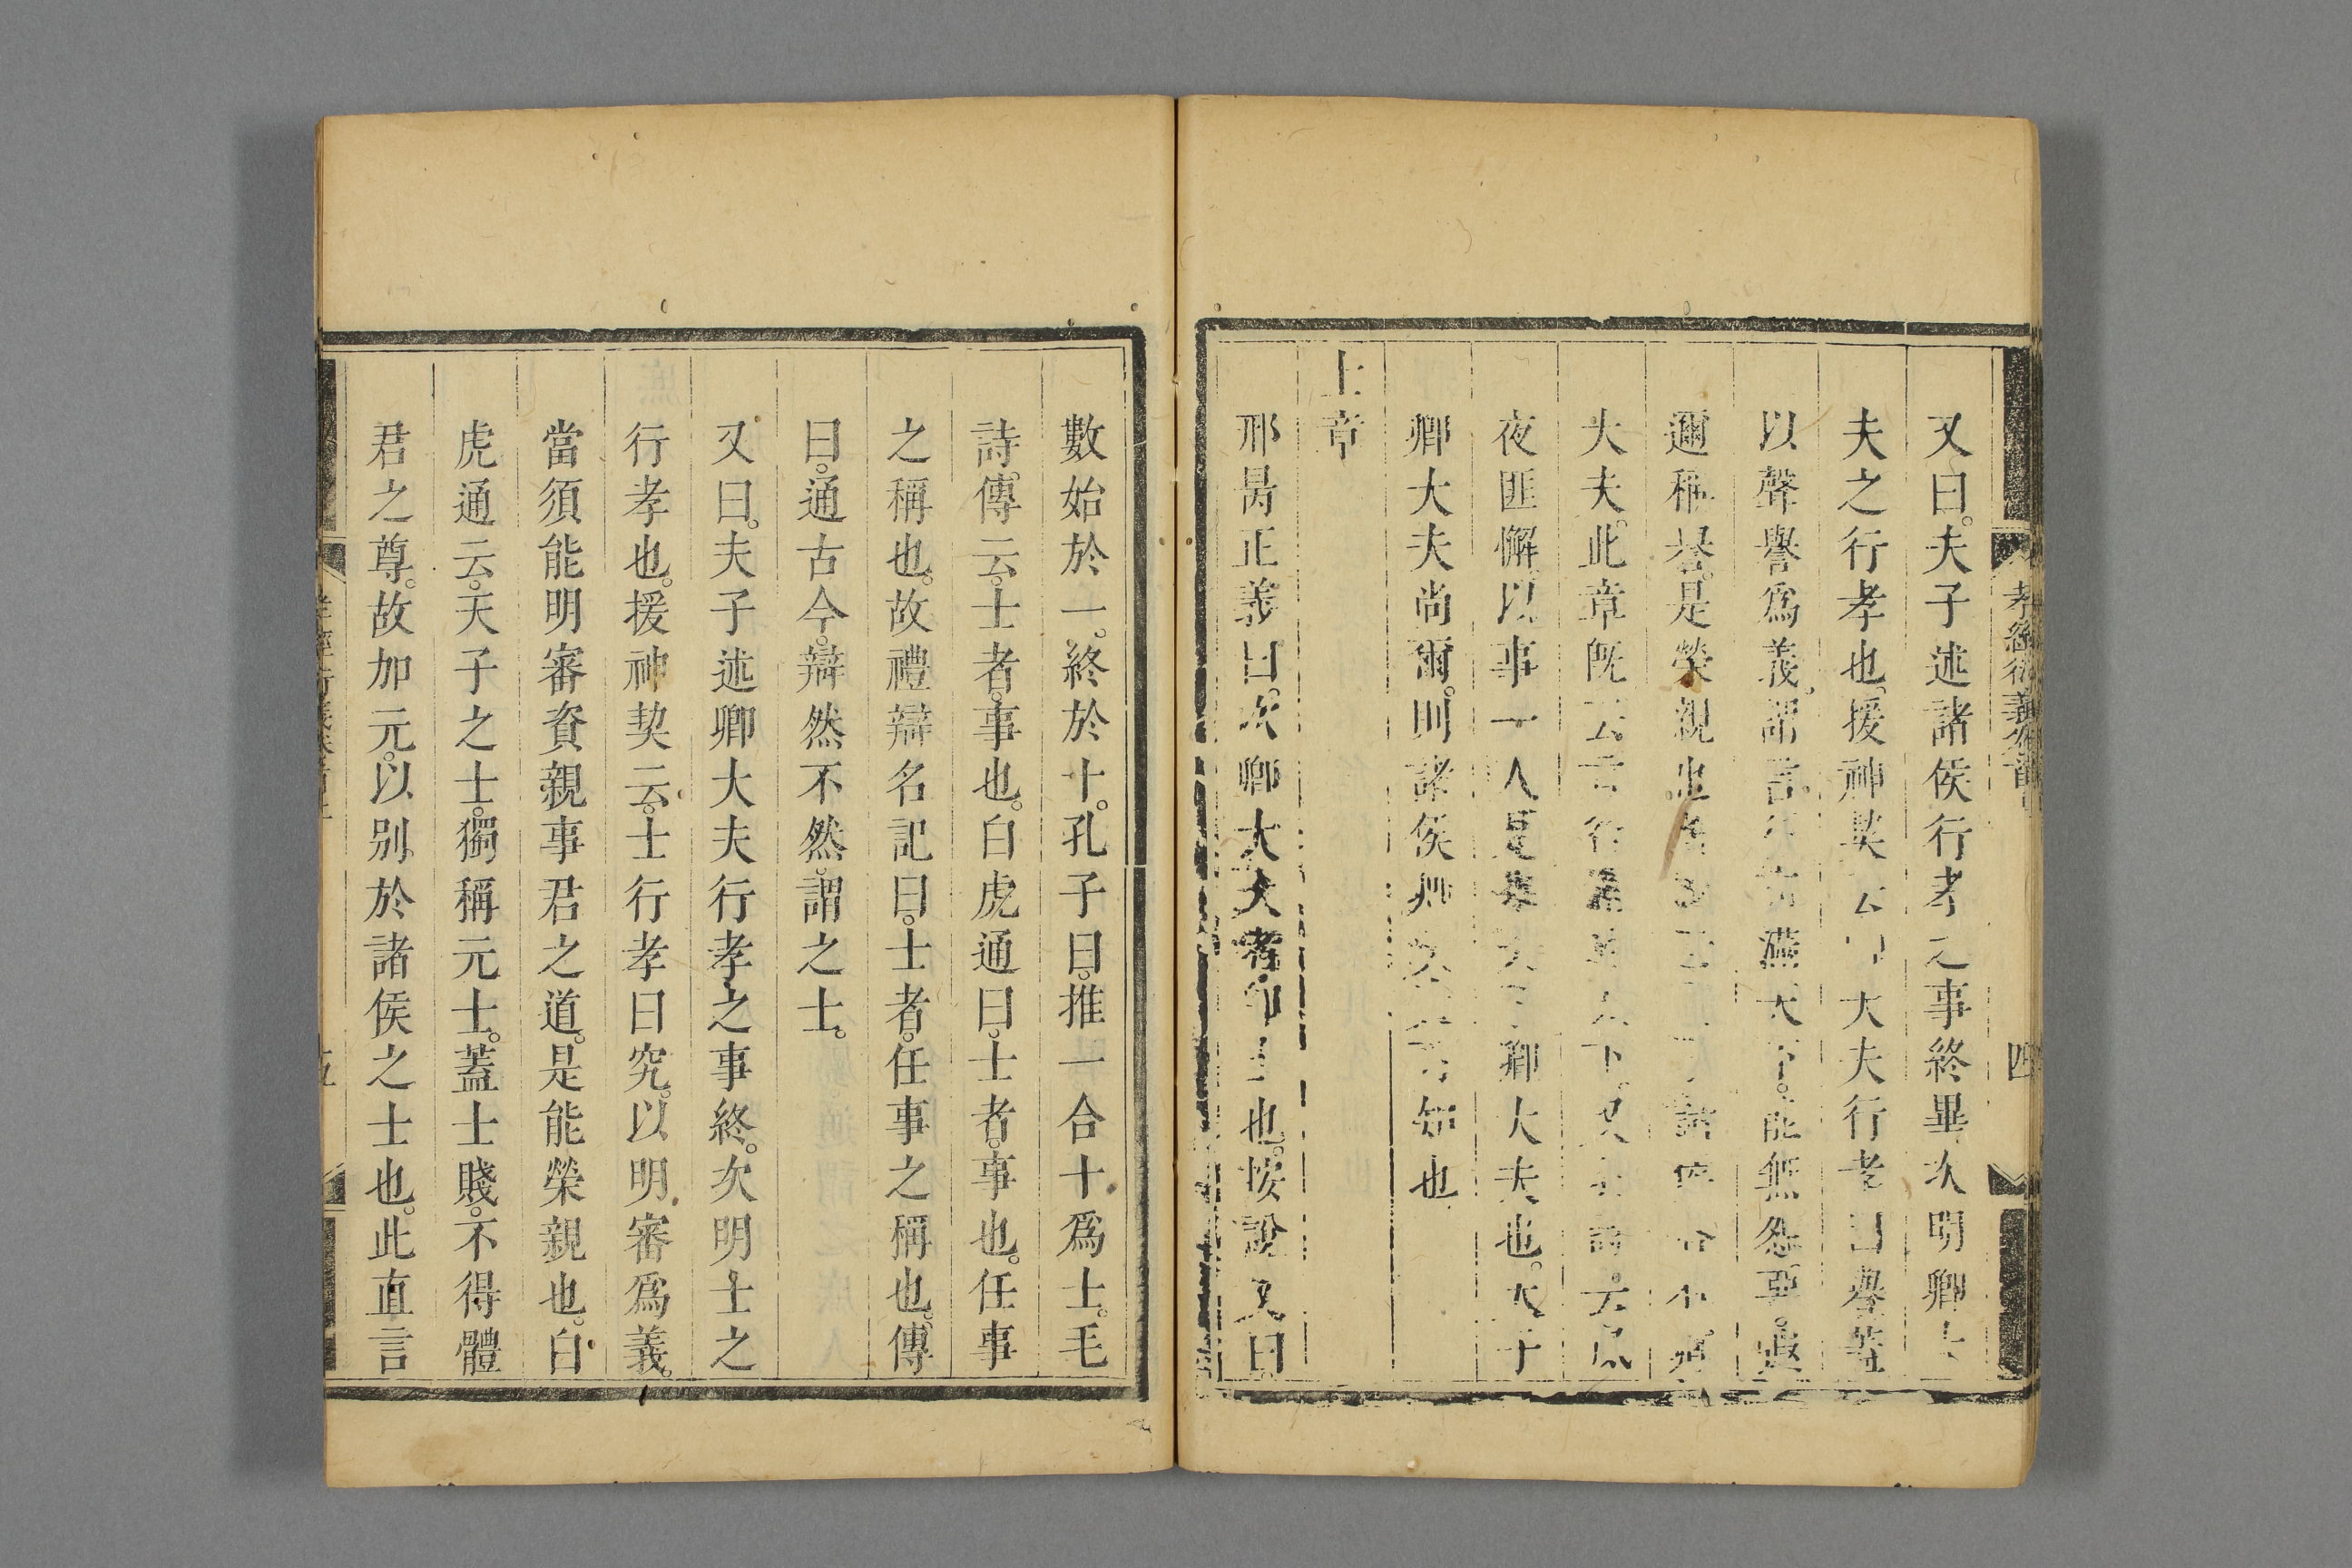 又曰。夫子述諸侯行孝之事終畢。次明卿大
夫之行孝也。援神契云。卿大夫行孝曰譽。蓋
以聲譽爲義。謂言行布滿天下。能無怨惡。遐
邇稱譽。是榮親也。
大夫。此章既云言行滿於天下。又引詩云夙
夜匪懈。以事一人。是舉天子卿大夫也。天子
卿大夫尚爾。則諸侯卿大夫可知也
士章
邢昺正義曰。次卿大夫者即士也。按說文曰
孝經衍義卷首上
四
數始於一。終於十。孔子曰。推一合十爲士。毛
詩。傳云。士者。事也。白虎通曰。士者。事也。任事
之稱也。故禮辯名記曰。士者。任事之稱也。傳
曰。通古今。辯然不然。謂之士。
又曰。夫子述卿大夫行孝之事終。次明士之
行孝也。援神契云。士行孝曰究。以明審爲義。
當須能明審資親事君之道。是能榮親也。白
虎通云。天子之士。獨稱元士。蓋士賤。不得體
君之尊。故加元。以別於諸侯之士也。此直言
五